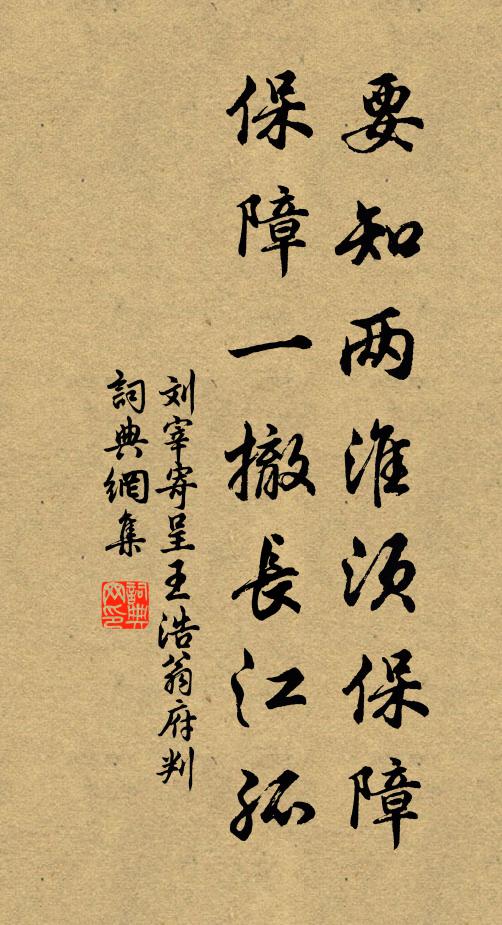 要知两淮须保障
保障一撤長江孤
刘宰寄呈王浩翁府判
詞典網集
詞典网印